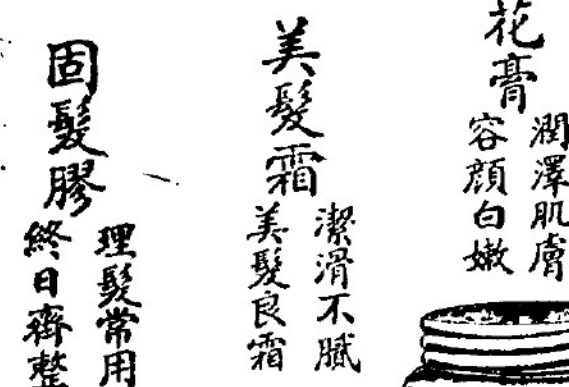 花膏
潤澤肌膚
容顏白嫩
美髮霜
潔滑不膩
美髮良霜
固髮膠
理髮常用
終日齊整